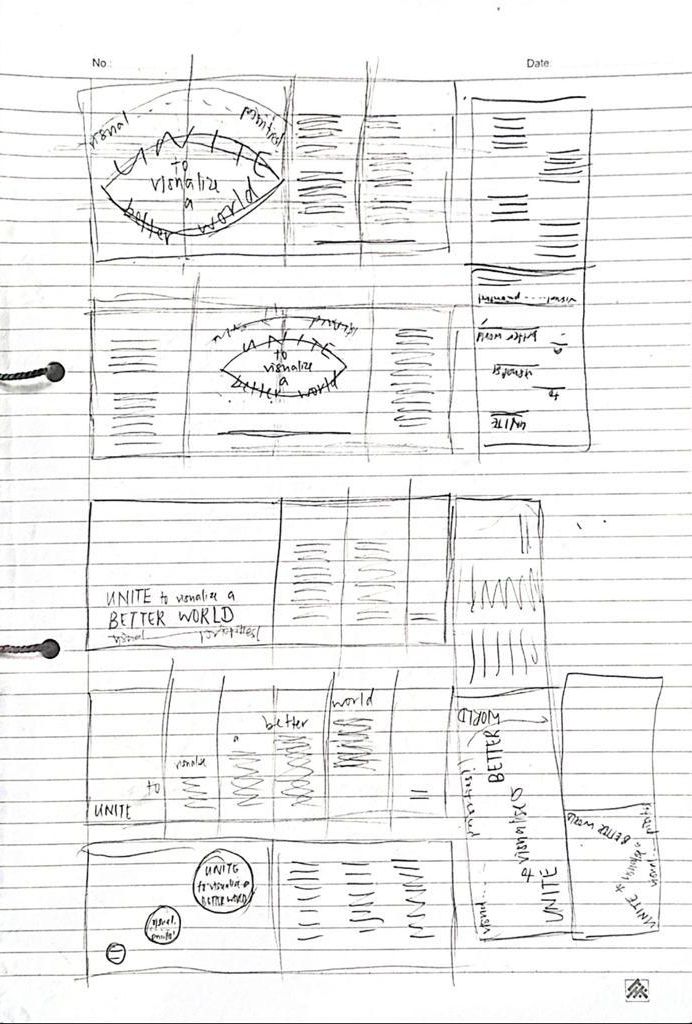 No :
Date
visual
UNITE
to
visualize
a
better world
UNITE
to
visualize
a
better world
better world
visualize
to
UNITE
UNITE to visualize a
BETTER WORLD
visual
world
better
a
visualize
to
UNITE
WORLD
BETTER
visualize
UNITE
visual
BETTER WORLD
UNITE to visualize
visual
UNITE
to visualize a
BETTER WORLD
visual